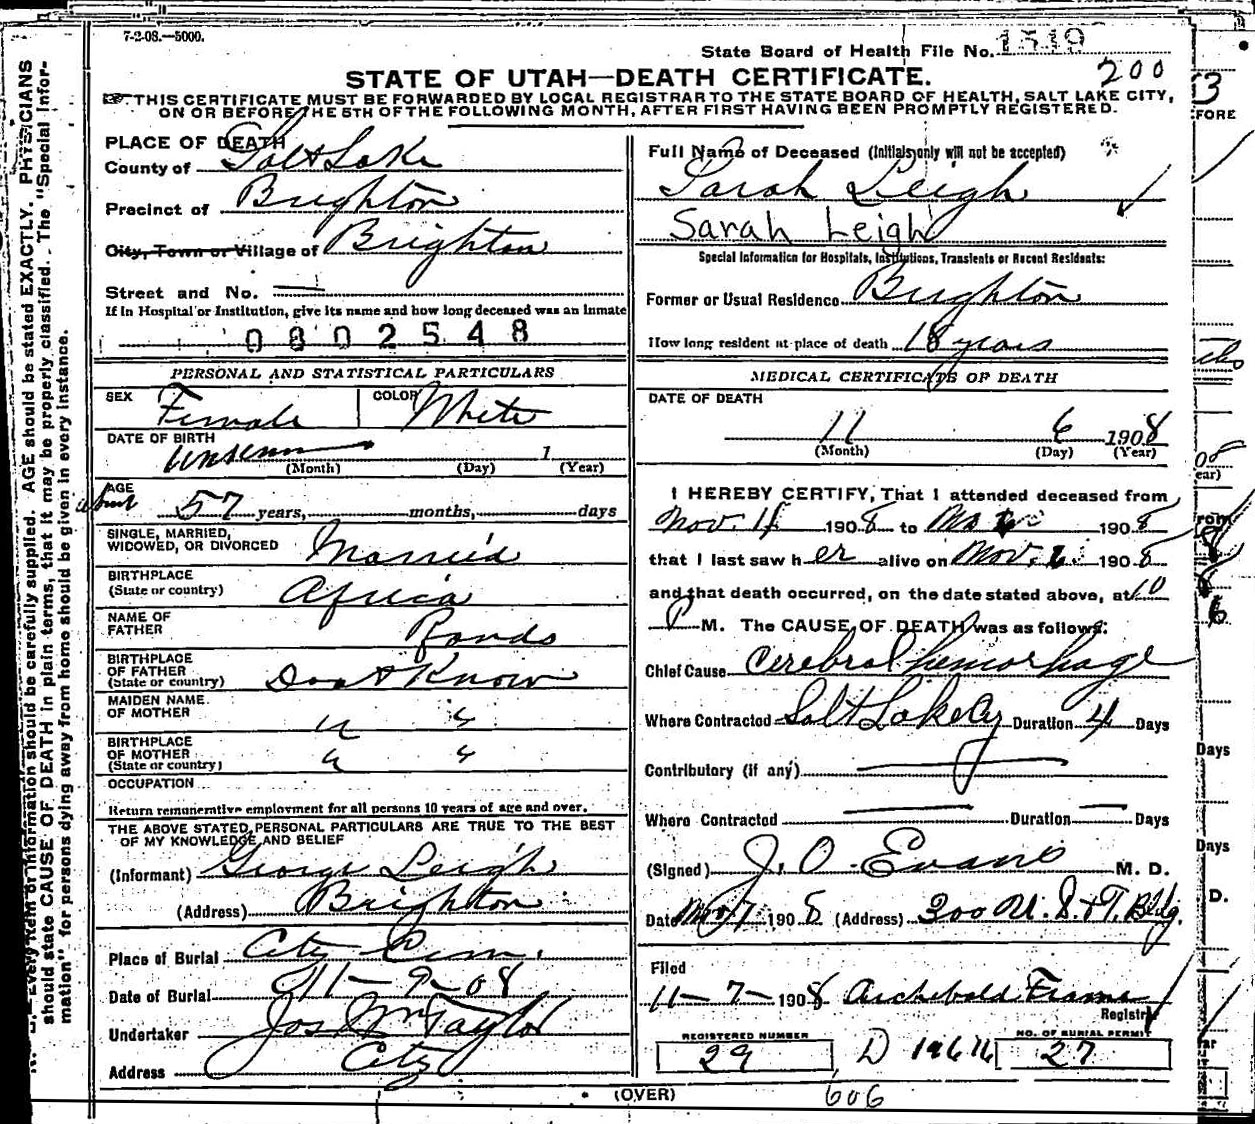 7-2-08.—5000.
State Board of Health File No. 1519
200
STATE OF UTAH—DEATH CERTIFICATE.
THIS CERTIFICATE MUST BE FORWARDED BY LOCAL REGISTRAR TO THE STATE BOARD OF HEALTH, SALT LAKE CITY,
ON OR BEFORE THE 5TH OF THE FOLLOWING MONTH, AFTER FIRST HAVING BEEN PROMPTLY REGISTERED.
PLACE OF DEATH
County of Salt Lake
Precinct of Brighton
City, Town or Village of Brighton
Street and No. —
If in Hospital or Institution, give its name and how long deceased was an inmate
0802548
PERSONAL AND STATISTICAL PARTICULARS
SEX Female COLOR White
DATE OF BIRTH
(Month) (Day) 1 (Year)
AGE about 57 years, months, days
SINGLE, MARRIED,
WIDOWED, OR DIVORCED Married
BIRTHPLACE
(State or country) Africa
NAME OF
FATHER Rands
BIRTHPLACE
OF FATHER
(State or country) Don't Know
MAIDEN NAME
OF MOTHER " "
BIRTHPLACE
OF MOTHER
(State or country) " "
OCCUPATION
Return remunerative employment for all persons 10 years of age and over.
THE ABOVE STATED PERSONAL PARTICULARS ARE TRUE TO THE BEST
OF MY KNOWLEDGE AND BELIEF
(Informant) George Leigh
(Address) Brighton
Place of Burial City Cem.
Date of Burial 11-9-08
Undertaker Jos Wm Taylor
Address City
Full Name of Deceased (Initials only will not be accepted)
Sarah Leigh
Sarah Leigh
Special Information for Hospitals, Institutions, Transients or Recent Residents:
Former or Usual Residence Brighton
How long resident at place of death 18 years
MEDICAL CERTIFICATE OF DEATH
DATE OF DEATH
11 6 1908
(Month) (Day) (Year)
I HEREBY CERTIFY, That I attended deceased from
Nov. 1908 to 1908
that I last saw her alive on Nov. 6 1908
and that death occurred, on the date stated above, at 10
P M. The CAUSE OF DEATH was as follows:
Chief Cause Cerebral hemorhage
Where Contracted Salt Lake Cy Duration 4 Days
Contributory (if any) —
Where Contracted — Duration — Days
(Signed) J. O. Evans M. D.
Date Nov 7 1908 (Address) 300 U. S. & T. Bldg.
Filed
11-7-1908 Archibald Frame
Registrar
REGISTERED NUMBER
29
D
NO. OF BURIAL PERMIT
27
(OVER)
606
Every item of information should be carefully supplied. AGE should be stated EXACTLY. PHYSICIANS
should state CAUSE OF DEATH in plain terms, that it may be properly classified. The "Special Infor-
mation" for persons dying away from home should be given in every instance.
Days
Days
D.